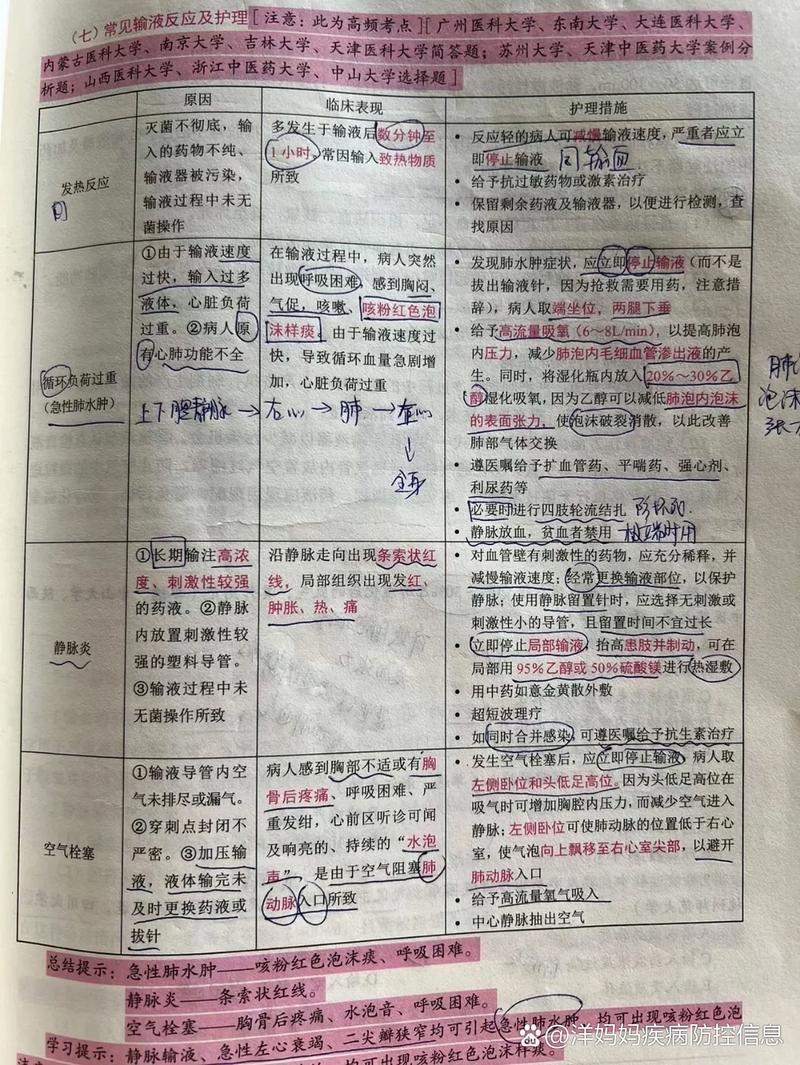 （七）常见输液反应及护理[注意：此为高频考点][广州医科大学、东南大学、大连医科大学、
内蒙古医科大学、南京大学、吉林大学、天津医科大学简答题；苏州大学、天津中医药大学案例分
析题；山西医科大学、浙江中医药大学、中山大学选择题]
原因
临床表现
护理措施
发热反应
灭菌不彻底，输
入的药物不纯、
输液器被污染，
输液过程中未无
菌操作
多发生于输液后数分钟至
1小时。常因输入致热物质
所致
• 反应轻的病人可减慢输液速度，严重者应立
即停止输液 同输血
• 给予抗过敏药物或激素治疗
• 保留剩余药液及输液器，以便进行检测，查
找原因
循环负荷过重
（急性肺水肿）
①由于输液速度
过快，输入过多
液体，心脏负荷
过重。②病人原
有心肺功能不全
在输液过程中，病人突然
出现呼吸困难，感到胸闷、
气促，咳嗽、咳粉红色泡
沫样痰。由于输液速度过
快，导致循环血量急剧增
加，心脏负荷过重
上下腔静脉→右心→肺→左心
↓
全身
• 发现肺水肿症状，应立即停止输液（而不是
拔出输液针，因为抢救需要用药，注意措
辞），病人取端坐位，两腿下垂
• 给予高流量吸氧（6～8L/min），以提高肺泡
内压力，减少肺泡内毛细血管渗出液的产
生。同时，将湿化瓶内放入20%～30%乙
醇湿化吸氧，因为乙醇可以减低肺泡内泡沫
的表面张力，使泡沫破裂消散，以此改善
肺部气体交换
• 遵医嘱给予扩血管药、平喘药、强心剂、
利尿药等
• 必要时进行四肢轮流结扎
• 静脉放血，贫血者禁用
泡沫
静脉炎
①长期输注高浓
度、刺激性较强
的药液。②静脉
内放置刺激性较
强的塑料导管。
③输液过程中未
无菌操作所致
沿静脉走向出现条索状红
线，局部组织出现发红、
肿胀、热、痛
• 对血管壁有刺激性的药物，应充分稀释，并
减慢输液速度；经常更换输液部位，以保护
静脉；使用静脉留置针时，应选择无刺激或
刺激性小的导管，且留置时间不宜过长
• 立即停止局部输液，抬高患肢并制动，可在
局部用95%乙醇或50%硫酸镁进行热湿敷
• 用中药如意金黄散外敷
• 超短波理疗
• 如同时合并感染，可遵医嘱给予抗生素治疗
空气栓塞
①输液导管内空
气未排尽或漏气。
②穿刺点封闭不
严密。③加压输
液，液体输完未
及时更换药液或
拔针
病人感到胸部不适或有胸
骨后疼痛、呼吸困难、严
重发绀，心前区听诊可闻
及响亮的、持续的“水泡
声”，是由于空气阻塞肺
动脉入口所致
• 发生空气栓塞后，应立即停止输液，病人取
左侧卧位和头低足高位。因为头低足高位在
吸气时可增加胸腔内压力，而减少空气进入
静脉；左侧卧位可使肺动脉的位置低于右心
室，使气泡向上飘移至右心室尖部，以避开
肺动脉入口
• 给予高流量氧气吸入
• 中心静脉抽出空气
总结提示：急性肺水肿——咳粉红色泡沫痰、呼吸困难。
静脉炎——条索状红线。
空气栓塞——胸骨后疼痛、水泡音、呼吸困难。
学习提示：静脉输液、急性左心衰竭、二尖瓣狭窄均可引起急性肺水肿，均可出现咳粉红色泡
均可出现咳粉红色泡沫样痰。
洋妈妈疾病防控信息